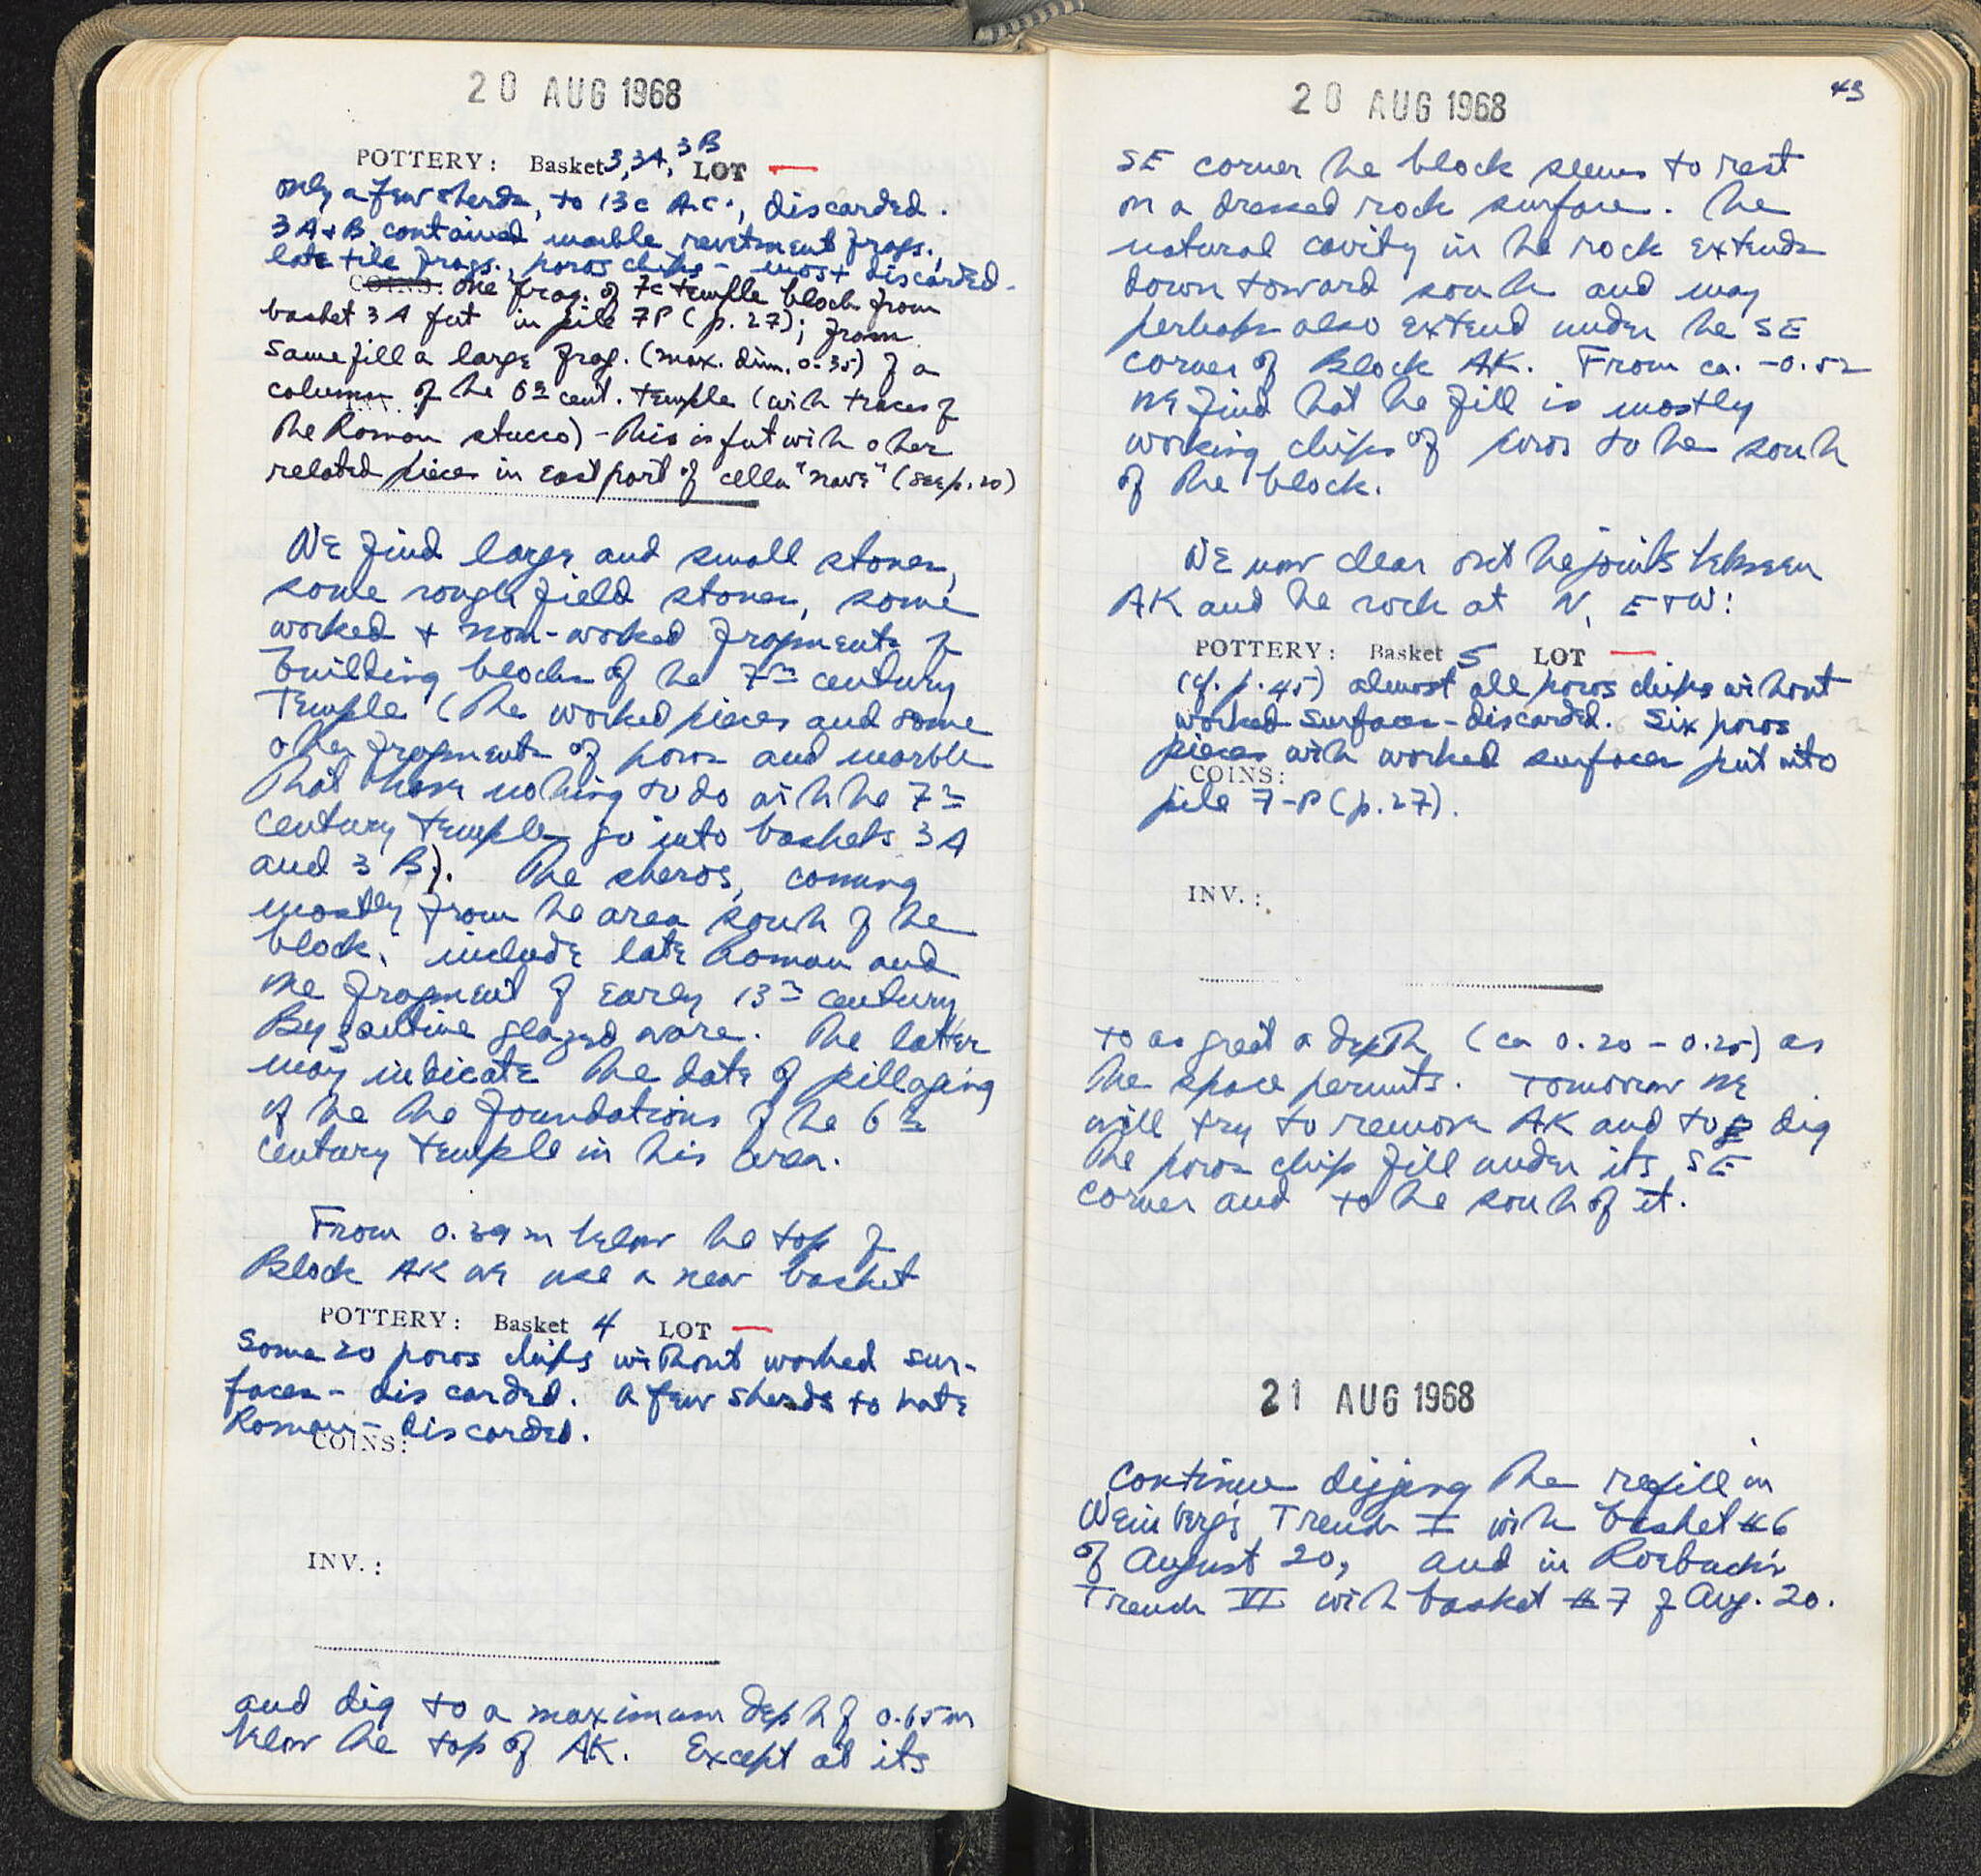 20 AUG 1968
POTTERY: Basket 3, 3A, 3B LOT —
only a few sherds, to 13c A.C., discarded.
3A+B contained marble revetment frags.,
late tile frags., poros chips - most discarded.
COINS: One frag. of 7c temple block from
basket 3A put in pile 7P (p. 27); from
same fill a large frag. (max. dim. 0.35) of a
column of the 6th cent. temple (with traces of
the Roman stucco) - this is put with other
related pieces in east part of cella "nave" (see p. 20)
We find large and small stones,
some rough field stones, some
worked + non-worked fragments of
building blocks of the 7th century
Temple (the worked pieces and some
other fragments of poros and marble
that have nothing to do with the 7th
century temple go into baskets 3A
and 3B). The sherds, coming
mostly from the area south of the
block, include late Roman and
one fragment of early 13th century
Byzantine glazed ware. The latter
may indicate the date of pillaging
of the the foundations of the 6th
century temple in this area.
From 0.39 m below the top of
Block AK we use a new basket
POTTERY: Basket 4 LOT —
Some 20 poros chips without worked sur-
faces - discarded. A few sherds to late
Roman - discarded.
COINS:
INV.:
and dig to a maximum depth of 0.65 m
below the top of AK. Except at its
20 AUG 1968
43
SE corner the block seems to rest
on a dressed rock surface. The
natural cavity in the rock extends
down toward south and may
perhaps also extend under the SE
corner of Block AK. From ca. -0.52
we find that the fill is mostly
working chips of poros to the south
of the block.
We now clear out the joints between
AK and the rock at N, E + W:
POTTERY: Basket 5 LOT —
(cf. p. 45) almost all poros chips without
worked surfaces - discarded. Six poros
pieces with worked surfaces put into
COINS:
pile 7-P (p. 27).
INV.:
to as great a depth (ca 0.20 - 0.25) as
the space permits. Tomorrow we
will try to remove AK and to dig
the poros chip fill under its SE
corner and to the south of it.
21 AUG 1968
Continue digging the refill in
Weinberg's Trench I with basket #6
of August 20, and in Roebuck's
Trench VI with basket #7 of Aug. 20.